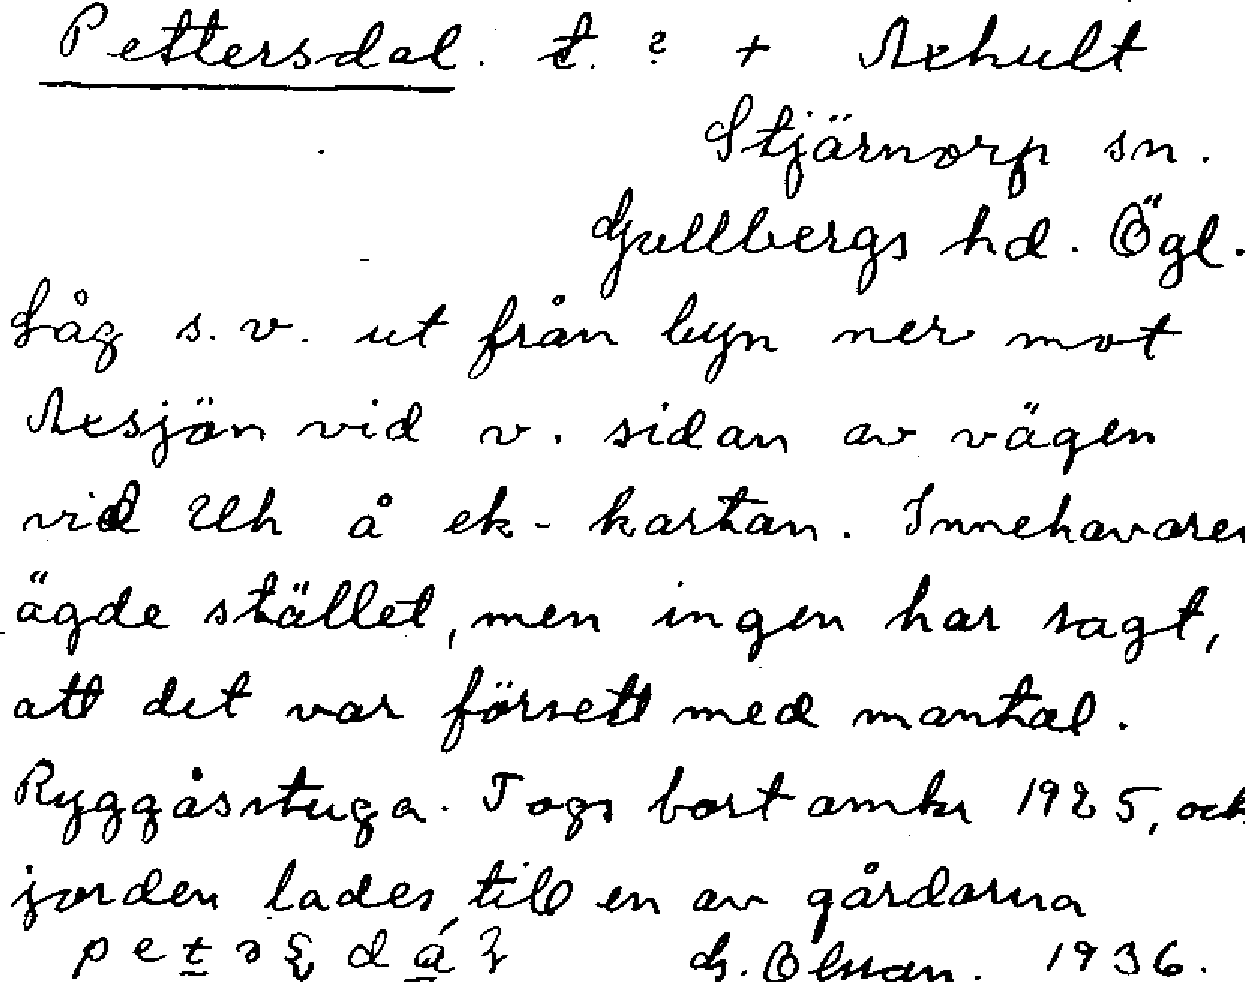 Pettersdal. t. ? + Axhult
Stjärnorp sn.
Gullbergs hd. Ögl.
Låg s. v. ut från byn ner mot
Axsjön vid v. sidan av vägen
vid Uh å ek-kartan. Innehavaren
ägde stället, men ingen har sagt,
att det var försett med mantal.
Ryggåsstuga. Togs bort omkr 1925, och
jorden lades till en av gårdarna
G. Olsson. 1936.